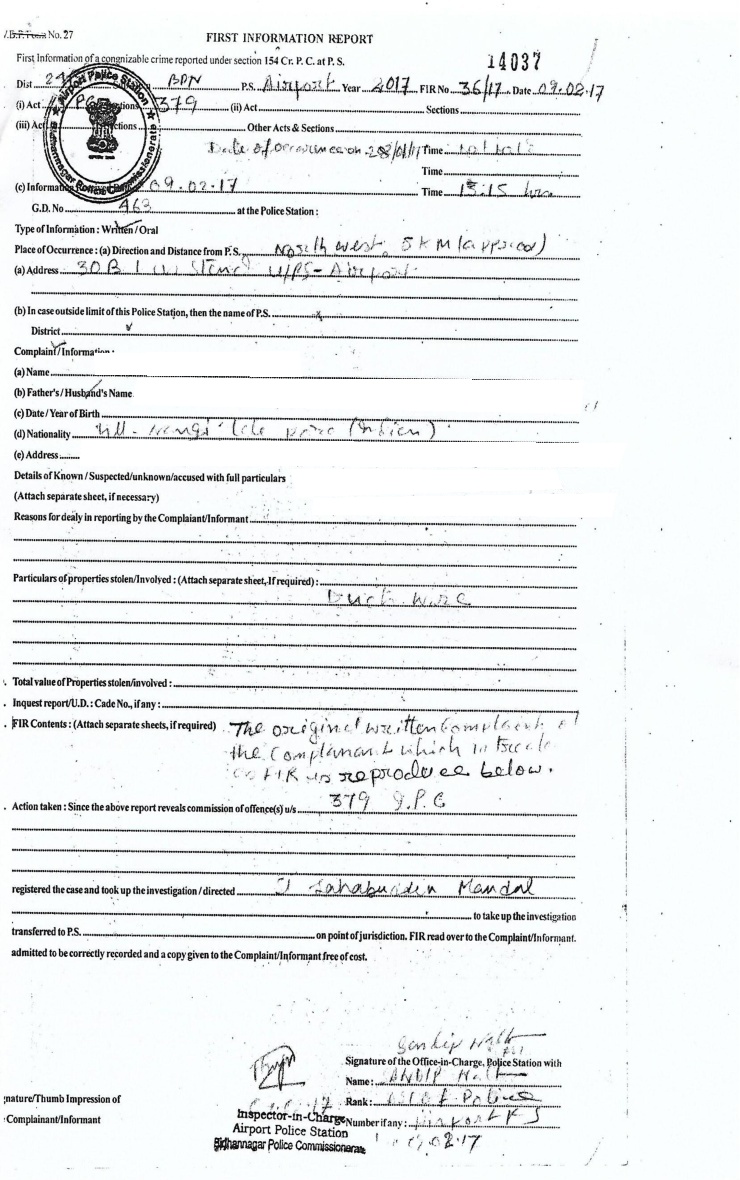 No. 27
FIRST INFORMATION REPORT
First Information of a congnizable crime reported under section 154 Cr. P. C. at P. S.
14037
Dist 24 BDN P.S. Airport Year 2017 FIR No 36/17 Date 09.02.17
(i) Act 379 (ii) Act Sections
(iii) Act Sections Other Acts & Sections
Airport Police Station
Bidhannagar Police Commissionerate
Date of occurrence on Time
Time
(c) Information 09.02.17 Time 15:15 hrs
G.D. No 463 at the Police Station :
Type of Information : Written / Oral
Place of Occurrence : (a) Direction and Distance from P.S. North west, 5 KM (approx)
(a) Address 30B Stand U/PS-Airport
(b) In case outside limit of this Police Station, then the name of P.S. x
District
Complaint / Information
(a) Name
(b) Father's / Husband's Name
(c) Date / Year of Birth
(d) Nationality (Indian)
(e) Address
Details of Known / Suspected/unknown/accused with full particulars
(Attach separate sheet, if necessary)
Reasons for dealy in reporting by the Complaiant/Informant
Particulars of properties stolen/Involyed : (Attach separate sheet, If required) :
Total value of Properties stolen/involved :
Inquest report/U.D. : Cade No., if any :
FIR Contents : (Attach separate sheets, if required) The original written Complaint of
the Complainant which is
FIR is reproduce below.
Action taken : Since the above report reveals commission of offence(s) u/s 379 I.P.C
registered the case and took up the investigation / directed SI Sahabuddin Mandal
to take up the investigation
transferred to P.S. on point of jurisdiction. FIR read over to the Complaint/Informant.
admitted to be correctly recorded and a copy given to the Complaint/Informant free of cost.
Signature of the Office-in-Charge, Police Station with
Name :
Rank : Police
Number if any : Airport PS
09.02.17
gnature/Thumb Impression of
Complainant/Informant
Inspector-in-Charge
Airport Police Station
Bidhannagar Police Commissionerate